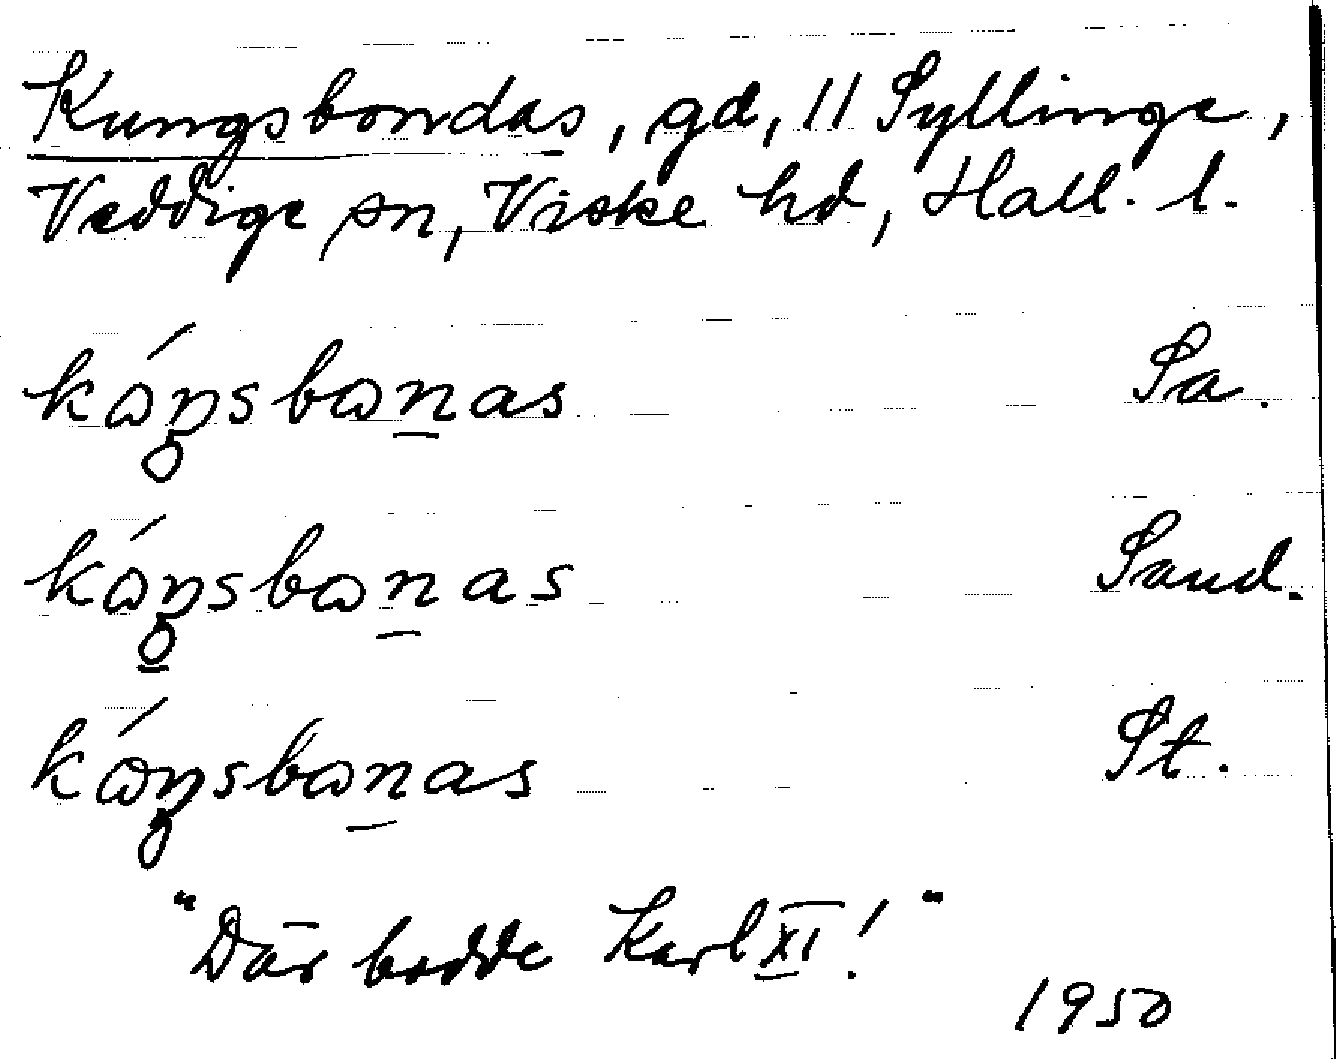 Kungsbondas, gd, 11 Syllinge,
Veddige sn, Viske hd, Hall. l.
kɷ́ŋsbɷnas Sa.
kɷ́ŋsbɷnas Sand.
kɷ́ŋsbɷnas St.
"Där bodde Karl XI!"
1950